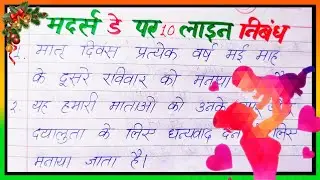 मदर्स डे पर 10 लाइन निबंध
1. मातृ दिवस प्रत्येक वर्ष मई माह
के दूसरे रविवार को मनाया
2. यह हमारी माताओं को उनके
दयालुता के लिए धन्यवाद देने लिए
मनाया जाता है।